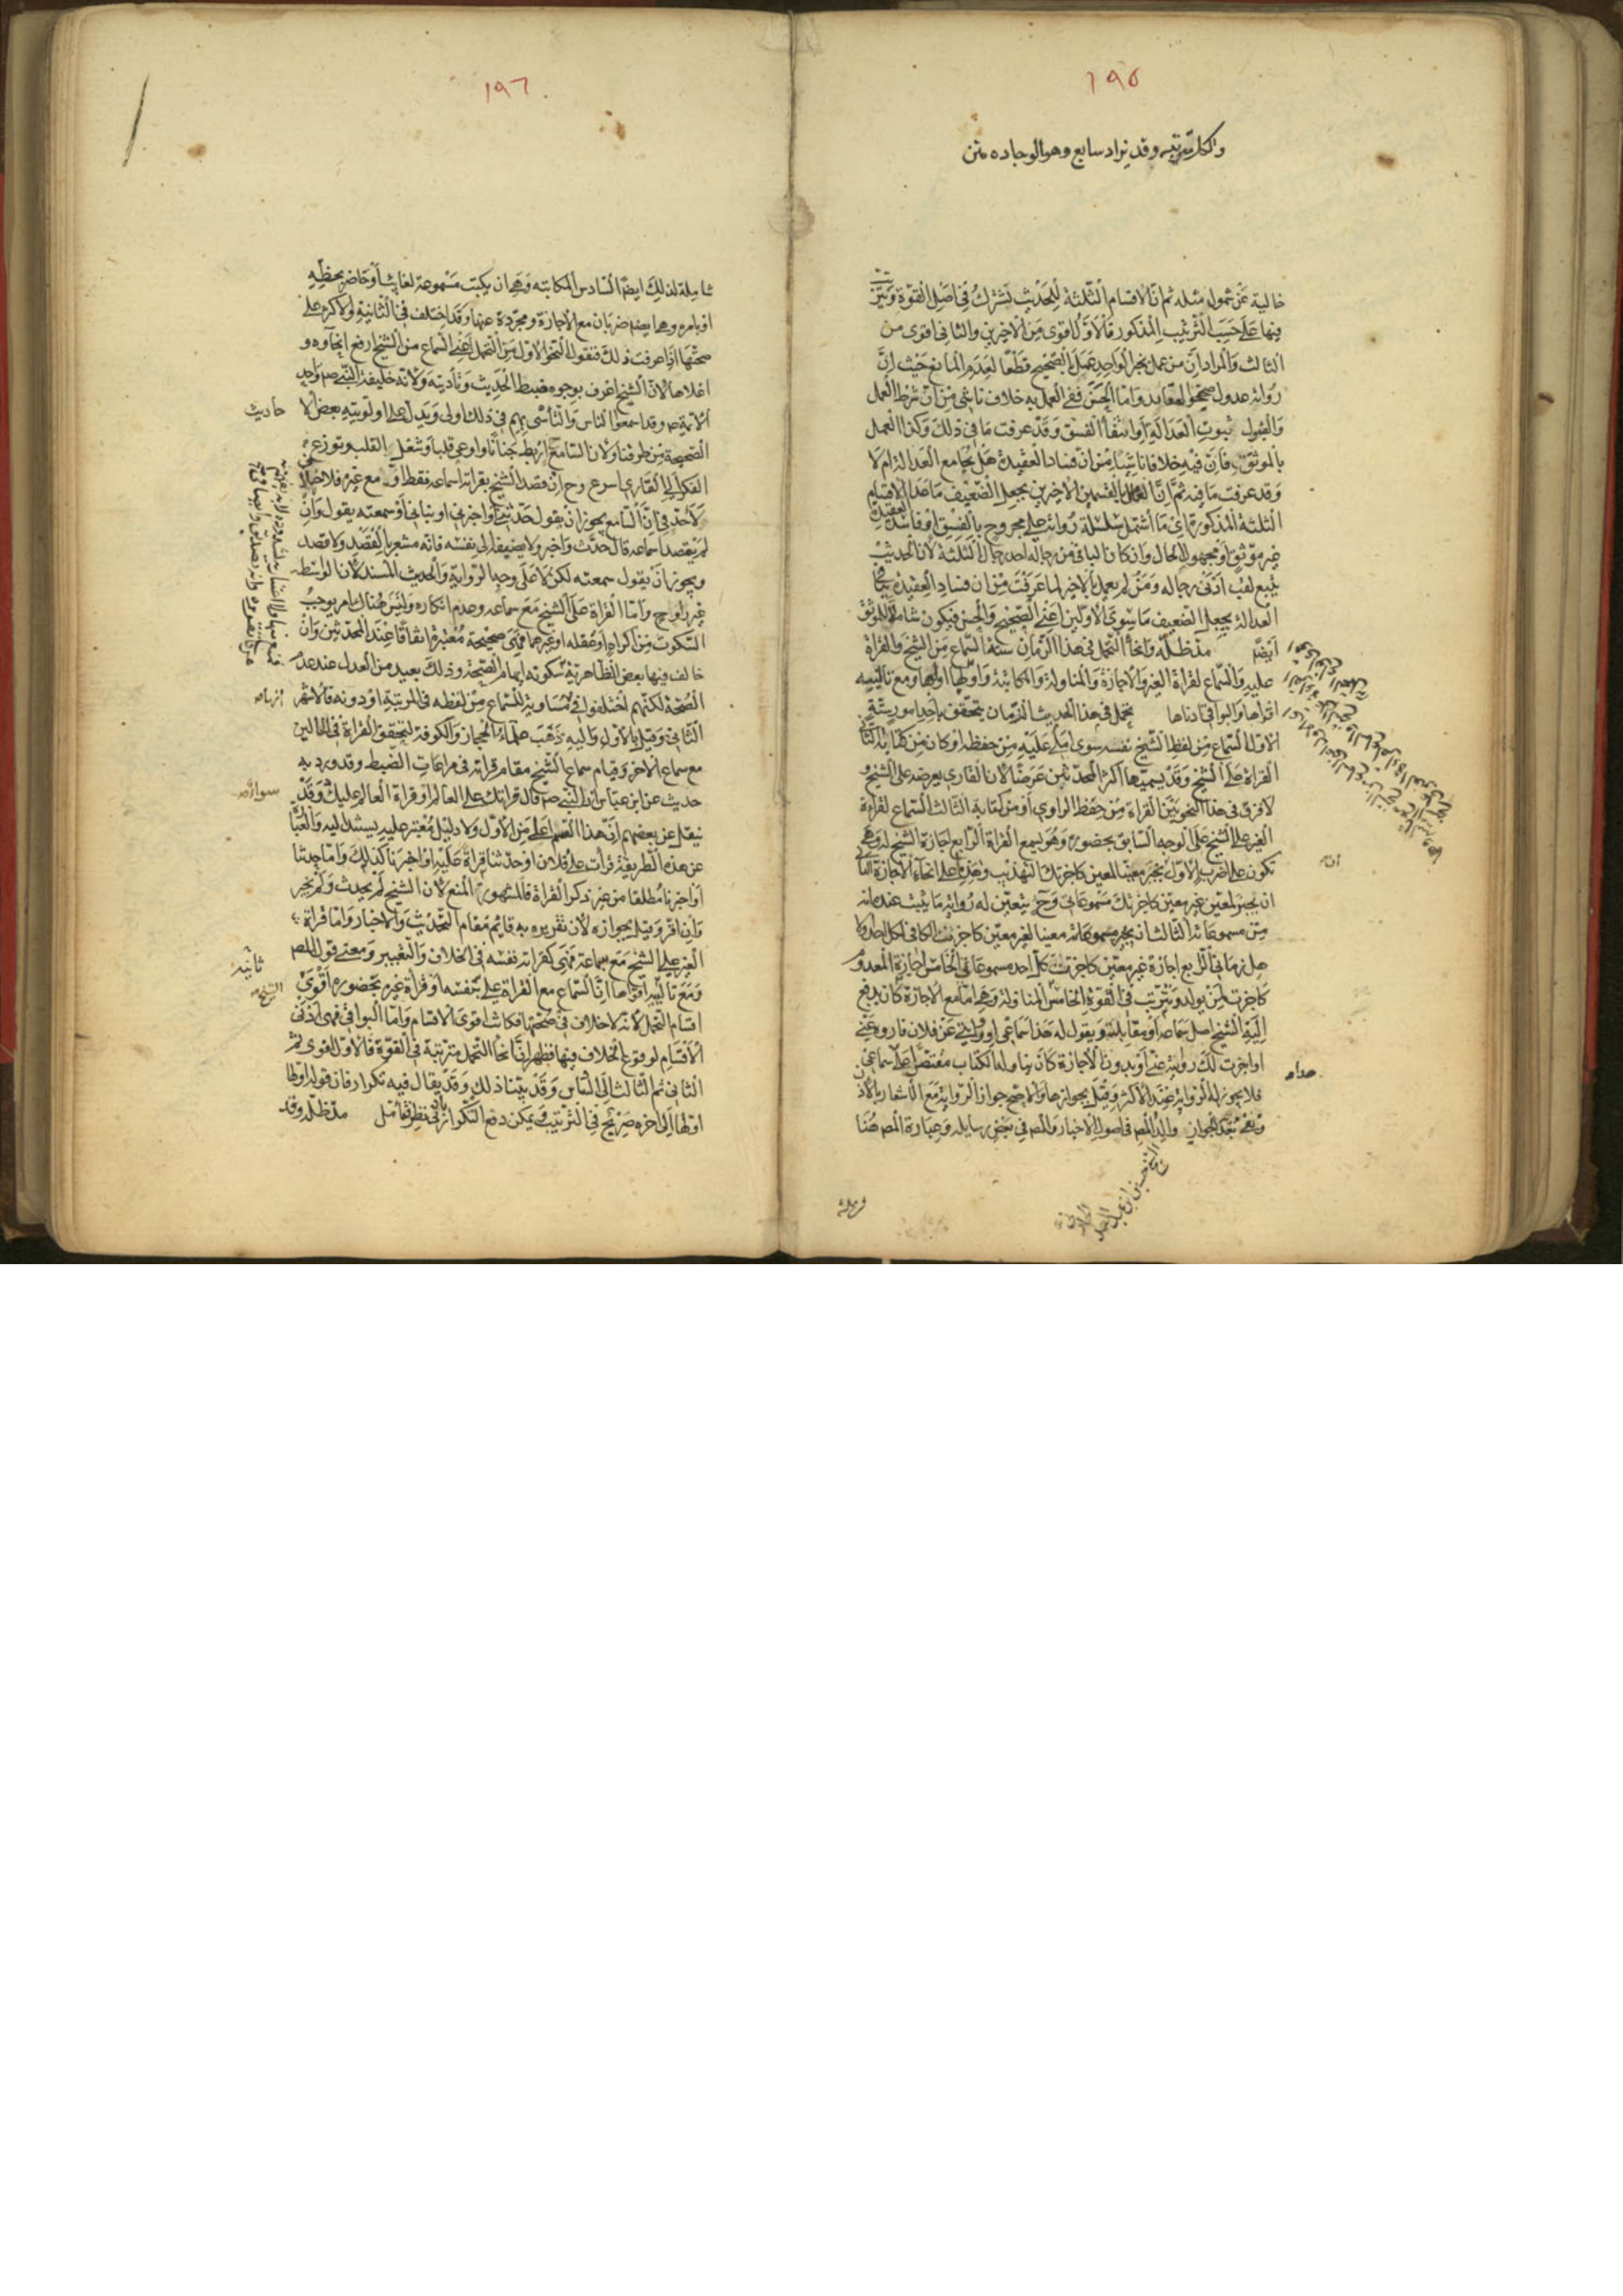 ١٩٥
ولكل مرتبة وقد يزاد سابع وهو الوجاده متن
خالية عن شموله مثله ثم ان الاقسام الثلثة للحديث تشترك في اصل القوة
فيها على حسب الترتيب المذكور فالاول اقوى من الاخرين والثاني اقوى من
الثالث والمراد ان من عمل بخبر الواحد عمل بالصحيح قطعا لعدم المانع حيث ان
رواته عدول صحيحو العقايد واما الحسن ففي العمل به خلاف ناشئ من ان شرط العمل
والقبول ثبوت العدالة او انتفاء الفسق وقد عرفت ما في ذلك وكذا العمل
بالموثق فان فيه خلافا ناشيا من ان فساد العقيدة هل يجامع العدالة ام لا
وقد عرفت ما فيه ثم ان القسمين الاخيرين بجعل الضعيف ما عدا الاقسام
الثلثة المذكورة اي ما اشتمل سلسلة رواته على مجروح بالفسق او فاسد العقيدة
غير موثق او مجهول الحال وان كان الباقي من رجاله احد رجال الثلثة لان الحديث
يتبع لقب ادنى رجاله ومن لم يعمل بالاخير لما عرفت من ان فساد العقيدة
العدالة يجعل الضعيف ما سوى الاولين اعني الصحيح والحسن فيكون شاملا للموثق
ايضا مد ظله وانحاء التحمل في هذا الزمان ستة السماع من الشيخ والقراة
عليه والسماع لقراة الغير والاجازة والمناولة والمكاتبة واولها اولها ومع تالييه
اقواها والبواقي ادناها تحمل في هذا الحديث الزمان يتحقق باحد امور ستة
الاول السماع من لفظ الشيخ نفسه سوى املى عليه من حفظه او كان من كتابه الثاني
القراة على الشيخ وقد يسميها اكثر المحدثين عرضا لان القاري يعرضه على الشيخ و
لا فرق في هذا النحو بين القراة من حفظ الراوي او من كتابه الثالث السماع لقراءة
الغير على الشيخ على الوجه السابق بحضوره وهو يسمع القراة الرابع اجازة الشيخ له وهي
تكون على اضرب الاول يجيز معينا لمعين كاجزتك التهذيب وهذه اعلى انحاء الاجازة الثاني
ان يجيز لمعين غير معين كاجزتك مسموعاتي وح يتعين له رواية ما يثبت عنده انه
من مسموعاته الثالث ان يجيز معينا لغير معين كاجزت الكافي لكل احد
اهل زماني الرابع اجازة غير معين كاجزت كل احد مسموعاتي الخامس اجازة المعدوم
كاجزت لمن يولد وتترتب في القوة الخامس المناولة وهي اما مع الاجازة كان يدفع
اليه الشيخ اصل سماعه او مقابلته ويقول له هذا سماعي او روايتي عن فلان فاروه عني
او اجزت لك روايته عني او بدون الاجازة كان يناوله الكتاب مقتصرا على هذا سماعي
فلا يجوز له الرواية عند الاكثر وقيل بجوازها والاصح جواز الرواية مع الاشعار بالاذن
والد المص في اصول الاخبار والمص في بعض رسايله وعبارة المص هنا
الشيخ حسين بن عبد الصمد
١٩٦
شاملة لذلك ايضا السادس المكاتبه وهي ان يكتب مسموعة لغايب او حاضر بخطه
او بامره وهي ايضا ضربان مع الاجازة ومجردة عنها وقد اختلف في الثانية والاكثر على
صحتها اذا عرفت ذلك فنقول النحو الاول من التحمل اعني السماع من الشيخ ارفع انحاوه و
اعلاها لان الشيخ اعرف بوجوه ضبط الحديث وتأديته ولانه خليفة النبي ص واحد
الائمة ص وقد اسمعوا الناس والتأسي بهم في ذلك اولى ويدل على اولويته بعض الا
حاديث
الصحيحة من طرقنا ولان السامع اربط جنانا واوعى قلبا وشغل القلب وتوزع
الفكر الى القاري اسرع وح ان قصد الشيخ بقراته اسماعه فقط او مع غيره فلا خلاف
لاحد في ان السامع يجوز ان يقول حدثني واخبرني وانباني او سمعته يقول وان
لم يقصد اسماعه قال حدث واخبر ولا يضيفه الى نفسه فانه مشعر بالقصد ولا قصد
ويجوز ان يقول سمعته لكن لا على وجه الرواية والحديث المسند لان الوسط
غير راو ح واما القراة على الشيخ مع سماعه وعدم انكاره وليس هناك امر يوجب
السكوت من اكراه او غفلة او غيرهما فهي صحيحة معتبرة اتفاقا عند المحدثين وان
خالف فيها بعض الظاهرية سكوته ايهام الصحة وذلك بعيد من العدل عند عدم
الصحة لكنهم اختلفوا في مساوية للسماع من لفظه في المرتبة او دونه فالاشهر
الثاني وقيل بالاول واليه ذهب علماء الحجاز والكوفة لتحقق القراة في الحالين
مع سماع الاخر وقيام سماع الشيخ مقام قراته في مراعات الضبط وقد ورد به
حديث عن ابن عباس ان النبي ص قال قراتك على العالم او قراة العالم عليك سواء وقد
نقل عن بعضهم ان هذا القسم اعلى من الاول ولا دليل معتبر عليه يستند اليه والعبارة
عن هذه الطريقة قرأت على فلان او حدثنا قراة عليه او اخبرنا كذلك واما حدثنا
او اخبرنا مطلقا من غير ذكر القراة فالمشهور المنع لان الشيخ لم يحدث ولم يخبر
وان اقر وقيل بجوازه لان تقريره به قايم مقام التحديث والاخبار واما قراة
الغير على الشيخ مع سماعة فهي كقراته نفسه في الخلاف والتعبير ومعنى قول المص
ثانية
ومع تالييه اقواها ان السماع مع القراة على الشيخ بنفسه او قراة غيره بحضوره اقوى
اقسام التحمل لانه لا خلاف في صحتها فكانت اقوى الاقسام واما البواقي فهي ادنى
الاقسام لوقوع الخلاف فيها فظهر ان انحاء التحمل مترتبة في القوة فالاول اقوى ثم
الثاني ثم الثالث الى السادس وقد بينا ذلك وقد يقال فيه تكرار فان قوله اولها
اولها الى اخره صريح في الترتيب ويمكن دفع التكرار بادنى نظر فتامل مد ظله وقد